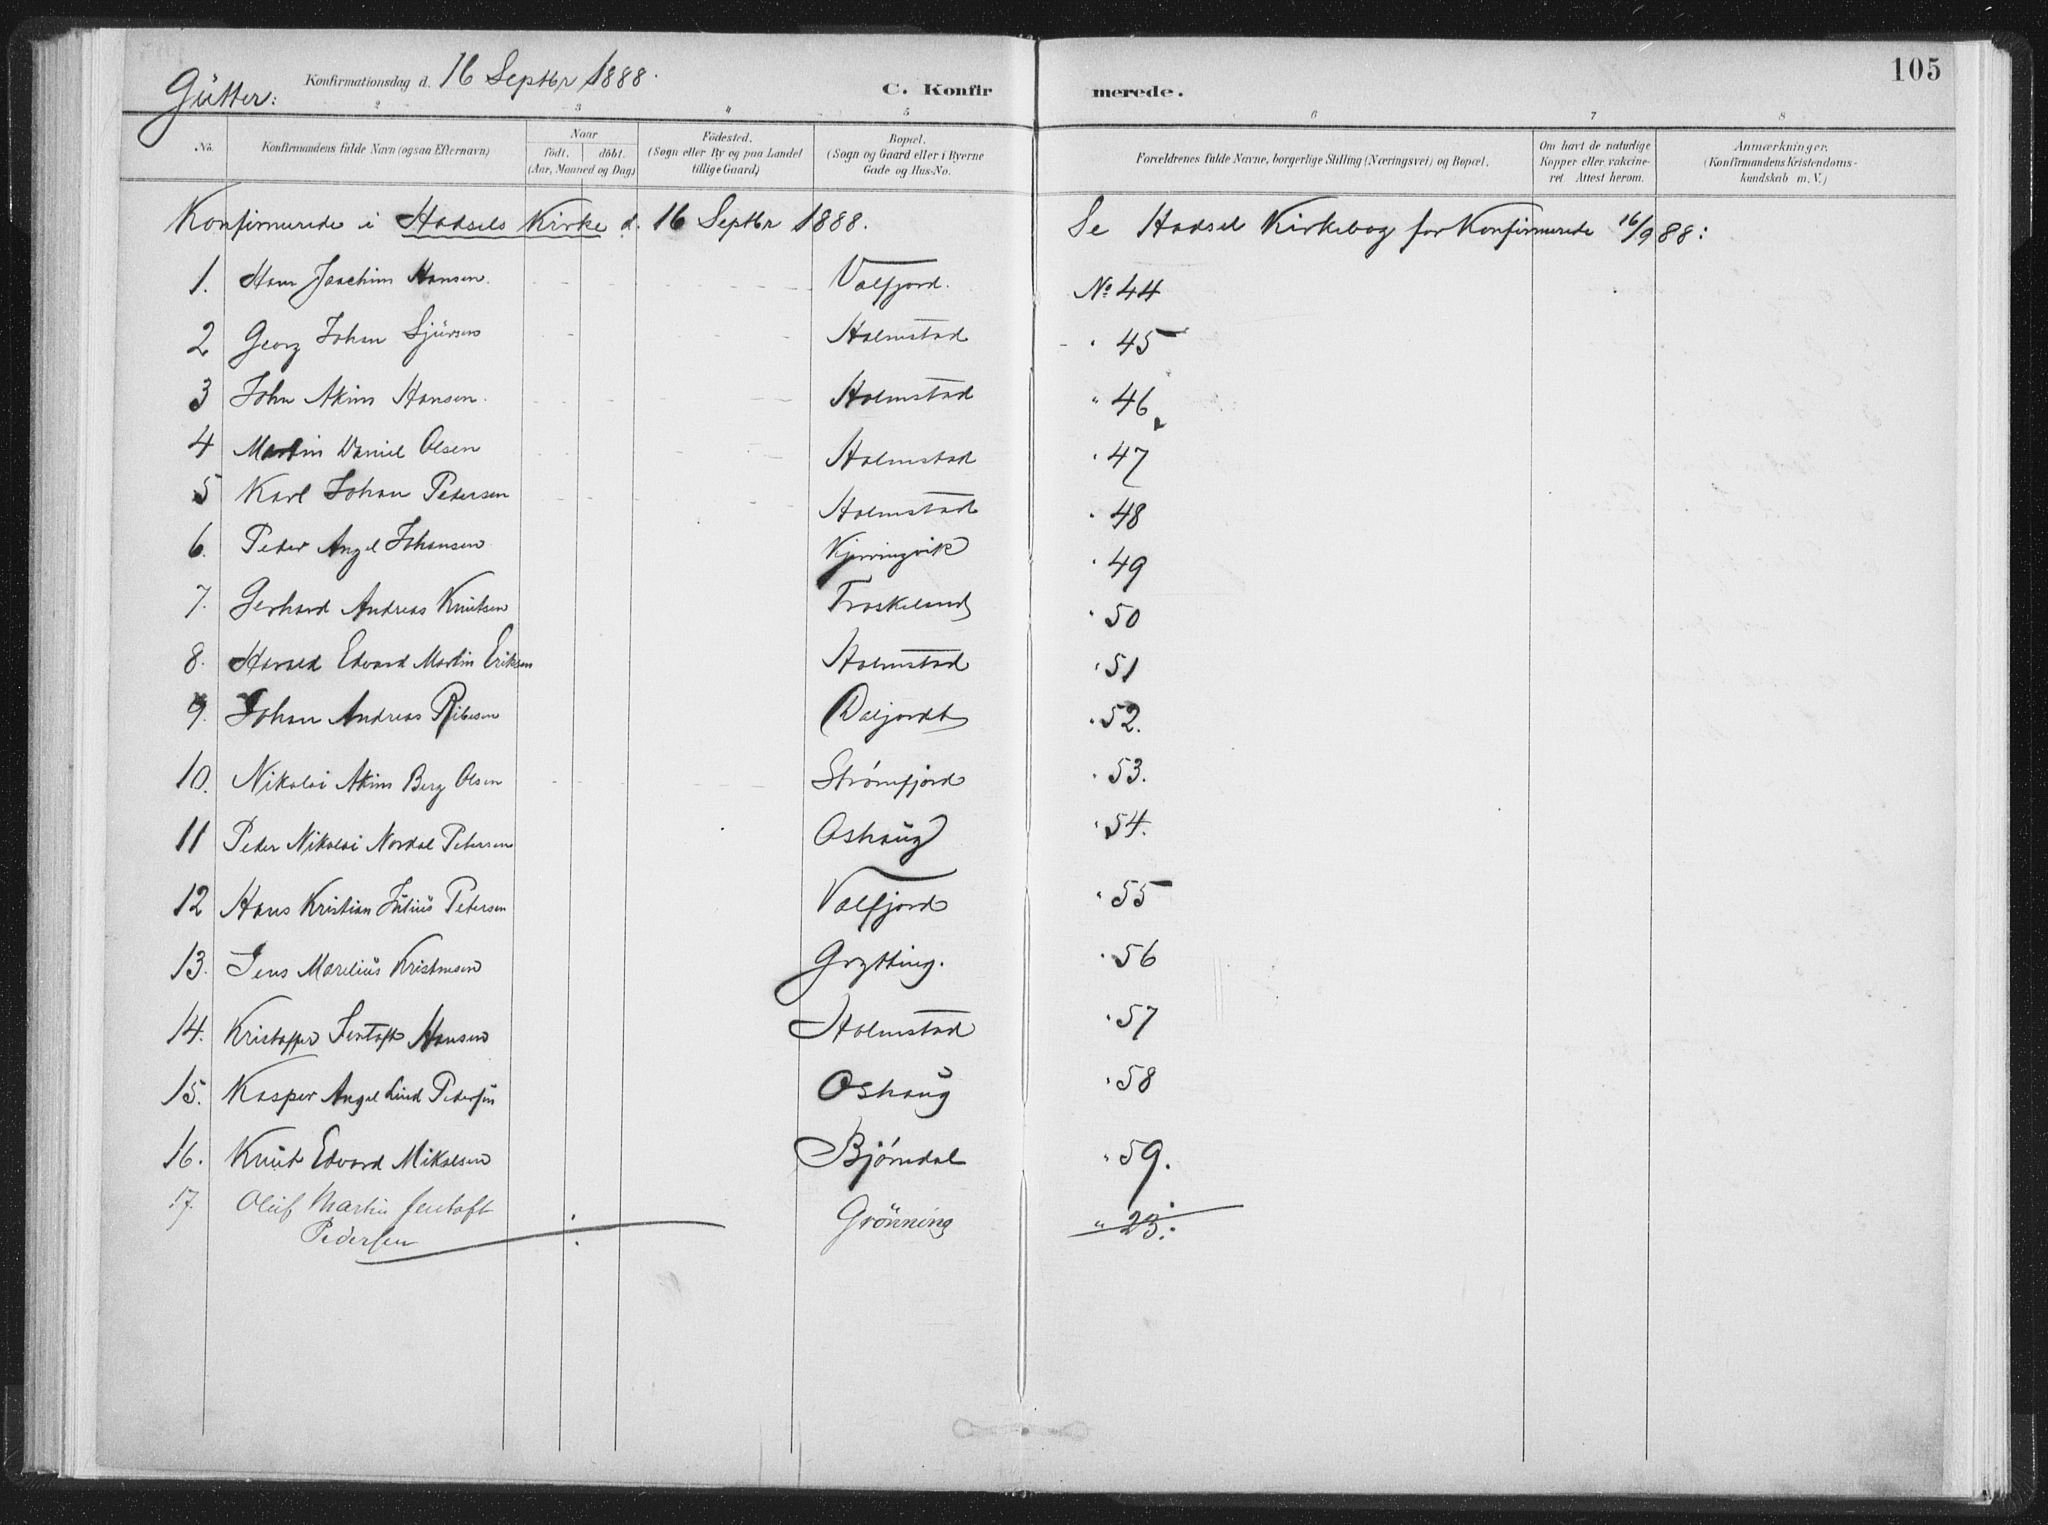 105
Gütter: Konfirmationsdag d. 16 Septbr 1888.
C. Konfirmerede.
2 3 4 5 6 7 8
No. Konfirmandens fulde Navn (ogsaa Efternavn) Naar födt. döbt. (Aar, Maaned og Dag) Födested. (Sogn eller By og paa Landet tillige Gaard) Bopæl. (Sogn og Gaard eller i Byerne Gade og Hus-No. Forældrenes fulde Navne, borgerlige Stilling (Næringsvei) og Bopæl. Om havt de naturlige Kopper eller vakcineret. Attest herom. Anmærkninger. (Konfirmandens Kristendomskundskab m. V.)
Konfirmerede i Hadsels Kirke d. 16 Septbr 1888. Se Hadsel Kirkebog for Konfirmerede 16/9 88:
1. Hans Joachim Hansen. Valfjord. No 44
2 Georg Johan Sjursen Holmstad " 45
3 John Akim Hansen. Holmstad " 46
4 Martin Daniel Olsen Holmstad " 47
5 Karl Johan Pedersen Holmstad " 48
6. Peder Angel Johansen Kjerringvik " 49
7. Gerhard Andreas Knutsen Fraskeland " 50
8. Harald Edvard Martin Eriksen Holmstad " 51
9. Johan Andreas Ribesen Daljordt " 52.
10. Nikolai Akim Berg Olsen Strømfjord " 53.
11 Peder Nikolai Nordal Petersen Oshaug " 54.
12 Hans Kristian Julius Petersen Valfjord " 55
13. Jens Marelius Kristensen Grytting. " 56
14. Kristoffer Jentoft Hansen Holmstad " 57
15. Kasper Angel Lind Pedersen Oshaug " 58
16. Knut Edvard Mikalsen Bjørndal " 59.
17. Oluf Martin Jentoft Pedersen Grönning " 23.